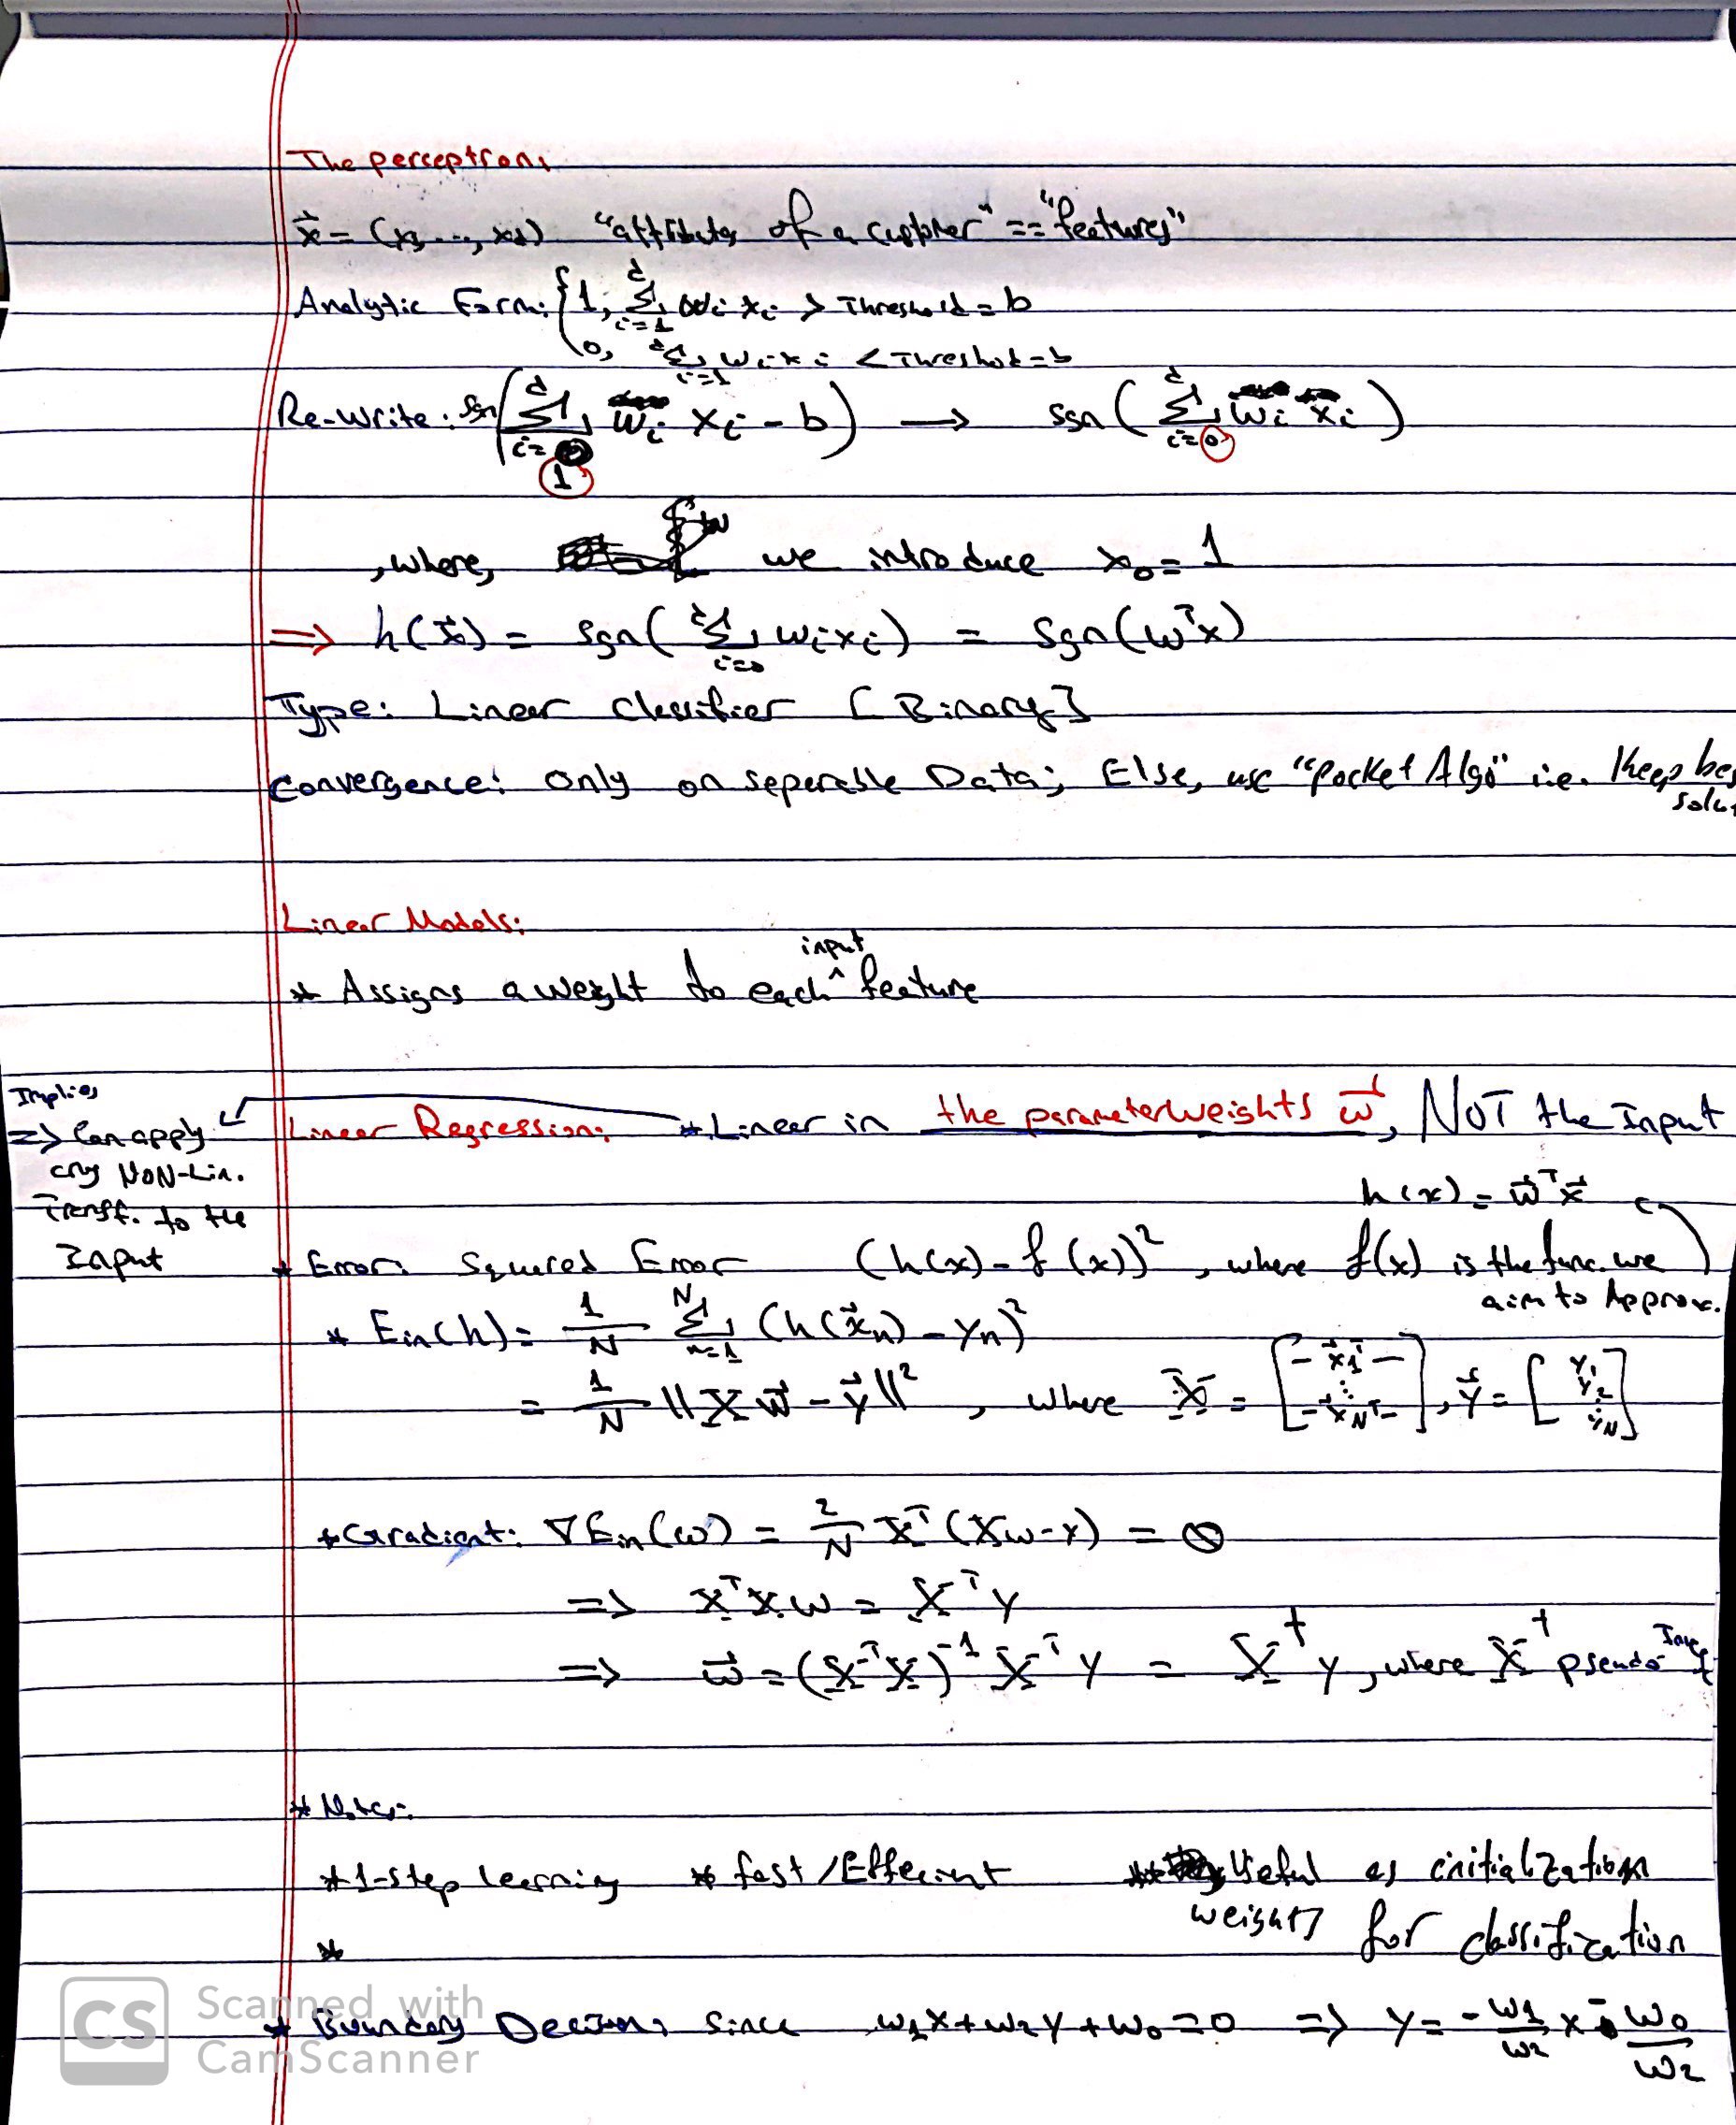 The perceptron:
x⃗ = (x₁, ..., x_d) "attributes of a customer" == "features"
Analytic Form: { 1, Σ_{i=1}^{d} w_i x_i > Threshold = b
0, Σ_{i=1}^{d} w_i x_i < Threshold = b
Re-write: sgn( Σ_{i=1}^{d} w_i x_i - b ) → sgn ( Σ_{i=0}^{d} w_i x_i )
, where, we introduce x₀ = 1
⇒ h(x⃗) = sgn( Σ_{i=0}^{d} w_i x_i ) = sgn(wᵀx)
Type: Linear classifier [Binary]
Convergence: Only on seperable Data; Else, use "Pocket Algo" i.e. Keep
Linear Models:
* Assigns a weight to each input feature
Implies
=> Can apply
any NON-Lin.
Transf. to the
Input
Linear Regression: * Linear in the parameter weights w⃗, NOT the Input
h(x) = w⃗ᵀx⃗
* Error: Squared Error (h(x) - f(x))², where f(x) is the func. we
aim to Approx.
* Ein(h) = 1/N Σ_{n=1}^{N} (h(x⃗n) - yn)²
= 1/N ||X w⃗ - y⃗||², where X = [ -x⃗₁ᵀ- ⋮ -x⃗_Nᵀ- ], y⃗ = [ y₁ y₂ ⋮ y_N ]
* Gradient: ∇Ein(w) = 2/N Xᵀ(Xw-y) = 0
=> XᵀXw = Xᵀy
=> w⃗ = (XᵀX)⁻¹Xᵀy = X†y, where X† pseudo
* Notes:
* 1-step learning * fast / Effecient * Useful as initialization
weights for classification
*
* Boundary Decision: since w₁x + w₂y + w₀ = 0 => y = -w₁/w₂ x - w₀/w₂
CS Scanned with
CamScanner